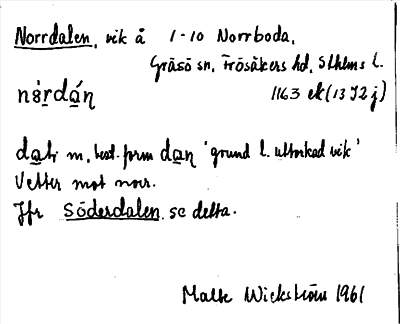 Norrdalen, vik å 1-10 Norrboda,
Gräsö sn, Frösåkers hd, Sthlms l.
1163 ek (13 I 2 j)
daɫ m, best. form dan 'grund l. uttorkad vik'
Vetter mot norr.
Jfr Söderdalen, se detta.
Malte Wickström 1961